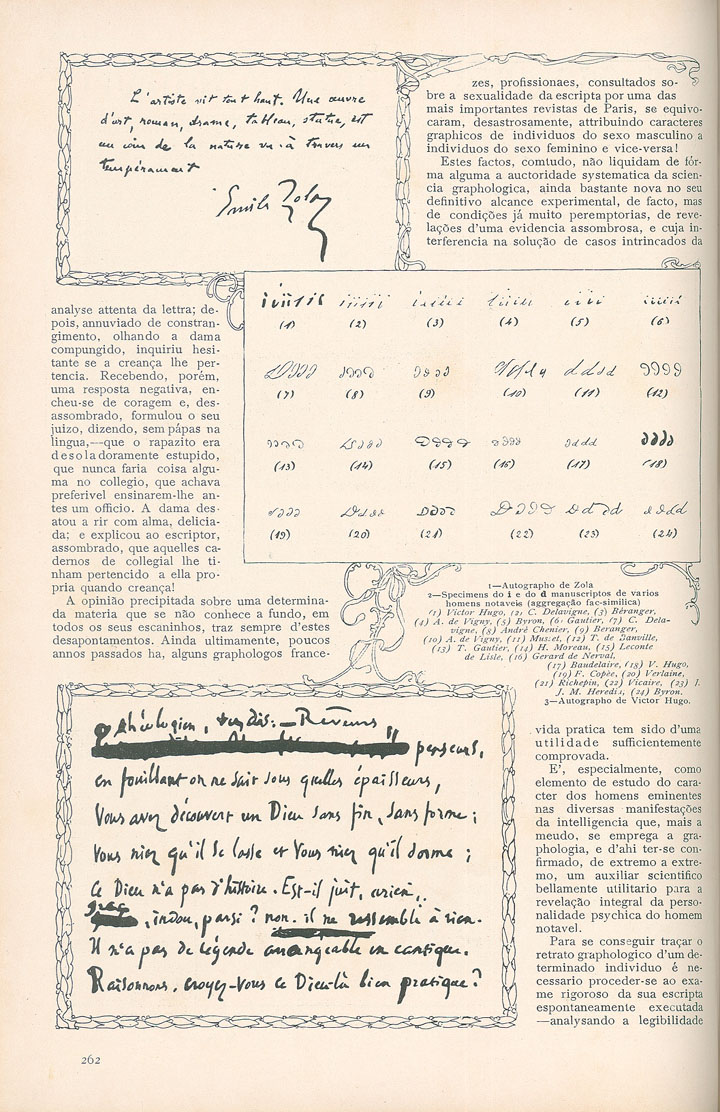 L'artiste vit tout haut. Une œuvre
d'art, roman, drame, tableau, statue, est
un coin de la nature vu à travers un
tempérament
Emile Zola
zes, profissionaes, consultados so-
bre a sexualidade da escripta por uma das
mais importantes revistas de Paris, se equivo-
caram, desastrosamente, attribuindo caracteres
graphicos de individuos do sexo masculino a
individuos do sexo feminino e vice-versa!
Estes factos, comtudo, não liquidam de fór-
ma alguma a auctoridade systematica da scien-
cia graphologica, ainda bastante nova no seu
definitivo alcance experimental, de facto, mas
de condições já muito peremptorias, de reve-
lações d'uma evidencia assombrosa, e cuja in-
terferencia na solução de casos intrincados da
(1) (2) (3) (4) (5) (6)
(7) (8) (9) (10) (11) (12)
(13) (14) (15) (16) (17) (18)
(19) (20) (21) (22) (23) (24)
analyse attenta da lettra; de-
pois, annuviado de constran-
gimento, olhando a dama
compungido, inquiriu hesi-
tante se a creança lhe per-
tencia. Recebendo, porém,
uma resposta negativa, en-
cheu-se de coragem e, des-
assombrado, formulou o seu
juizo, dizendo, sem pápas na
lingua,—que o rapazito era
desoladoramente estupido,
que nunca faria coisa algu-
ma no collegio, que achava
preferivel ensinarem-lhe an-
tes um officio. A dama des-
atou a rir com alma, delicia-
da; e explicou ao escriptor,
assombrado, que aquelles ca-
dernos de collegial lhe ti-
nham pertencido a ella pro-
pria quando creança!
A opinião precipitada sobre uma determina-
da materia que se não conhece a fundo, em
todos os seus escaninhos, traz sempre d'estes
desapontamentos. Ainda ultimamente, poucos
annos passados ha, alguns graphologos france-
1—Autographo de Zola
2—Specimens do i e do d manuscriptos de varios
homens notaveis (aggregação fac-similica)
(1) Victor Hugo, (2) C. Delavigne, (3) Béranger,
(4) A. de Vigny, (5) Byron, (6) Gautier, (7) C. Dela-
vigne, (8) André Chenier, (9) Beranger,
(10) A. de Vigny, (11) Musset, (12) T. de Banville,
(13) T. Gautier, (14) H. Moreau, (15) Leconte
de Lisle, (16) Gerard de Nerval,
(17) Baudelaire, (18) V. Hugo,
(19) F. Copée, (20) Verlaine,
(21) Richepin, (22) Vicaire, (23) J.
J. M. Heredis, (24) Byron.
3—Autographo de Victor Hugo.
théologien, tu dis: — Rêveurs
penseurs,
en fouillant on ne sait sous quelles épaisseurs,
Vous avez découvert un Dieu sans fin, sans forme;
Vous niez qu'il se lasse et Vous niez qu'il dorme;
Ce Dieu n'a pas d'histoire. Est-il juif, arien,
grec, indou, parsi? non. il ne ressemble à rien.
Il n'a pas de légende arrangeable en cantique.
Raisonnons, croyez-Vous ce Dieu-là bien pratique?
vida pratica tem sido d'uma
utilidade sufficientemente
comprovada.
E', especialmente, como
elemento de estudo do cara-
cter dos homens eminentes
nas diversas manifestações
da intelligencia que, mais a
meudo, se emprega a gra-
phologia, e d'ahi ter-se con-
firmado, de extremo a extre-
mo, um auxiliar scientifico
bellamente utilitario para a
revelação integral da perso-
nalidade psychica do homem
notavel.
Para se conseguir traçar o
retrato graphologico d'um de-
terminado individuo é ne-
cessario proceder-se ao exa-
me rigoroso da sua escripta
espontaneamente executada
—analysando a legibilidade
262